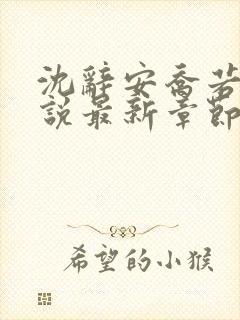 沈辭安喬若
說最新章節
希望的小猴